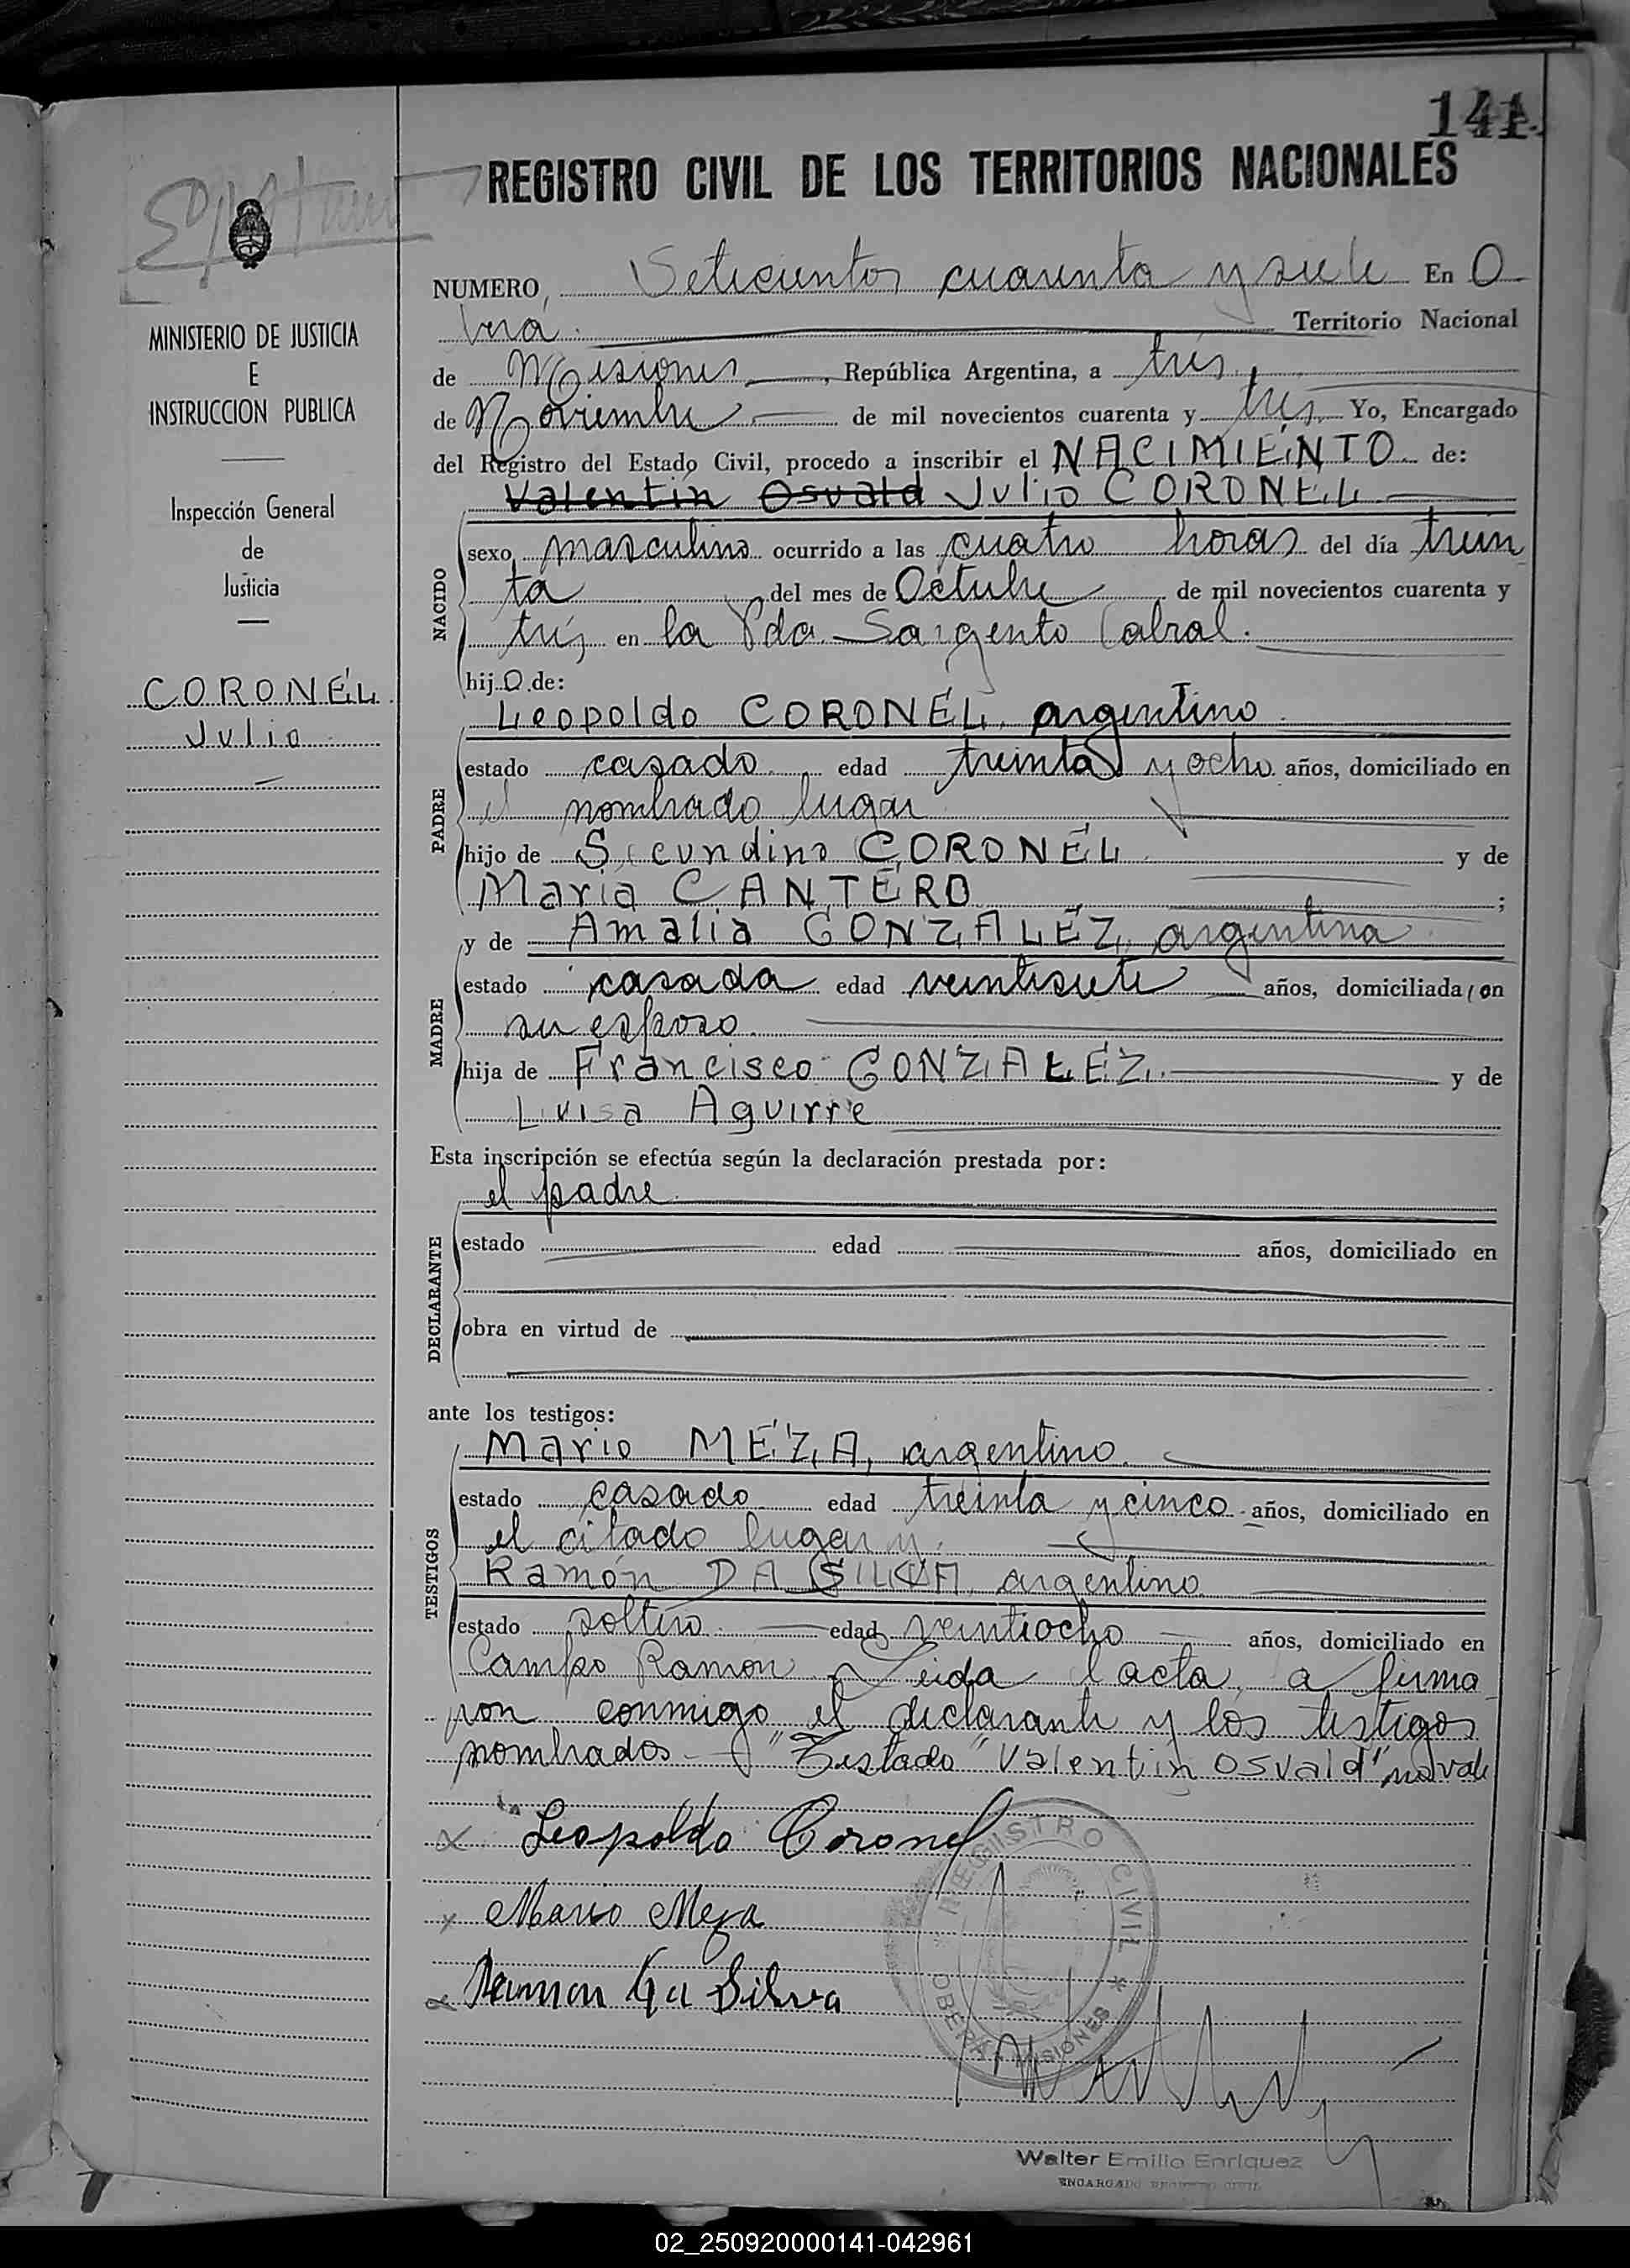 141
REGISTRO CIVIL DE LOS TERRITORIOS NACIONALES
MINISTERIO DE JUSTICIA
E
INSTRUCCION PUBLICA
Inspección General
de
Justicia
CORONEL
Julio
NUMERO, Setecientos cuarenta y siete En O
berá. Territorio Nacional
de Misiones, República Argentina, a tres
de Noviembre de mil novecientos cuarenta y tres Yo, Encargado
del Registro del Estado Civil, procedo a inscribir el NACIMIENTO de:
Valentin Osvald Julio CORONEL
NACIDO
sexo masculino ocurrido a las cuatro horas del día trein
ta del mes de Octubre de mil novecientos cuarenta y
tres en la Pda. Sargento Cabral.
hijo de:
Leopoldo CORONEL, argentino
PADRE
estado casado edad treinta y ocho años, domiciliado en
el nombrado lugar
hijo de Secundino CORONEL y de
Maria CANTERO ;
y de Amalia GONZALEZ, argentina
MADRE
estado casada edad veintisiete años, domiciliada con
su esposo.
hija de Francisco GONZALEZ y de
Luisa Aguirre
Esta inscripción se efectúa según la declaración prestada por:
el padre
DECLARANTE
estado edad años, domiciliado en
obra en virtud de
ante los testigos:
Mario MEZA, argentino.
TESTIGOS
estado casado edad treinta y cinco años, domiciliado en
el citado lugar y
Ramón DA SILVA, argentino
estado soltero edad veintiocho años, domiciliado en
Campo Ramon Leida l acta, a firma
ron conmigo el declarante y los testigos
nombrados "Testado" Valentin Osvald" no vale
Leopoldo Coronel
Mario Meza
Ramon Da Silva
REGISTRO CIVIL * OBERA MISIONES *
Walter Emilio Enriquez
ENCARGADO REGISTRO CIVIL
02_250920000141-042961